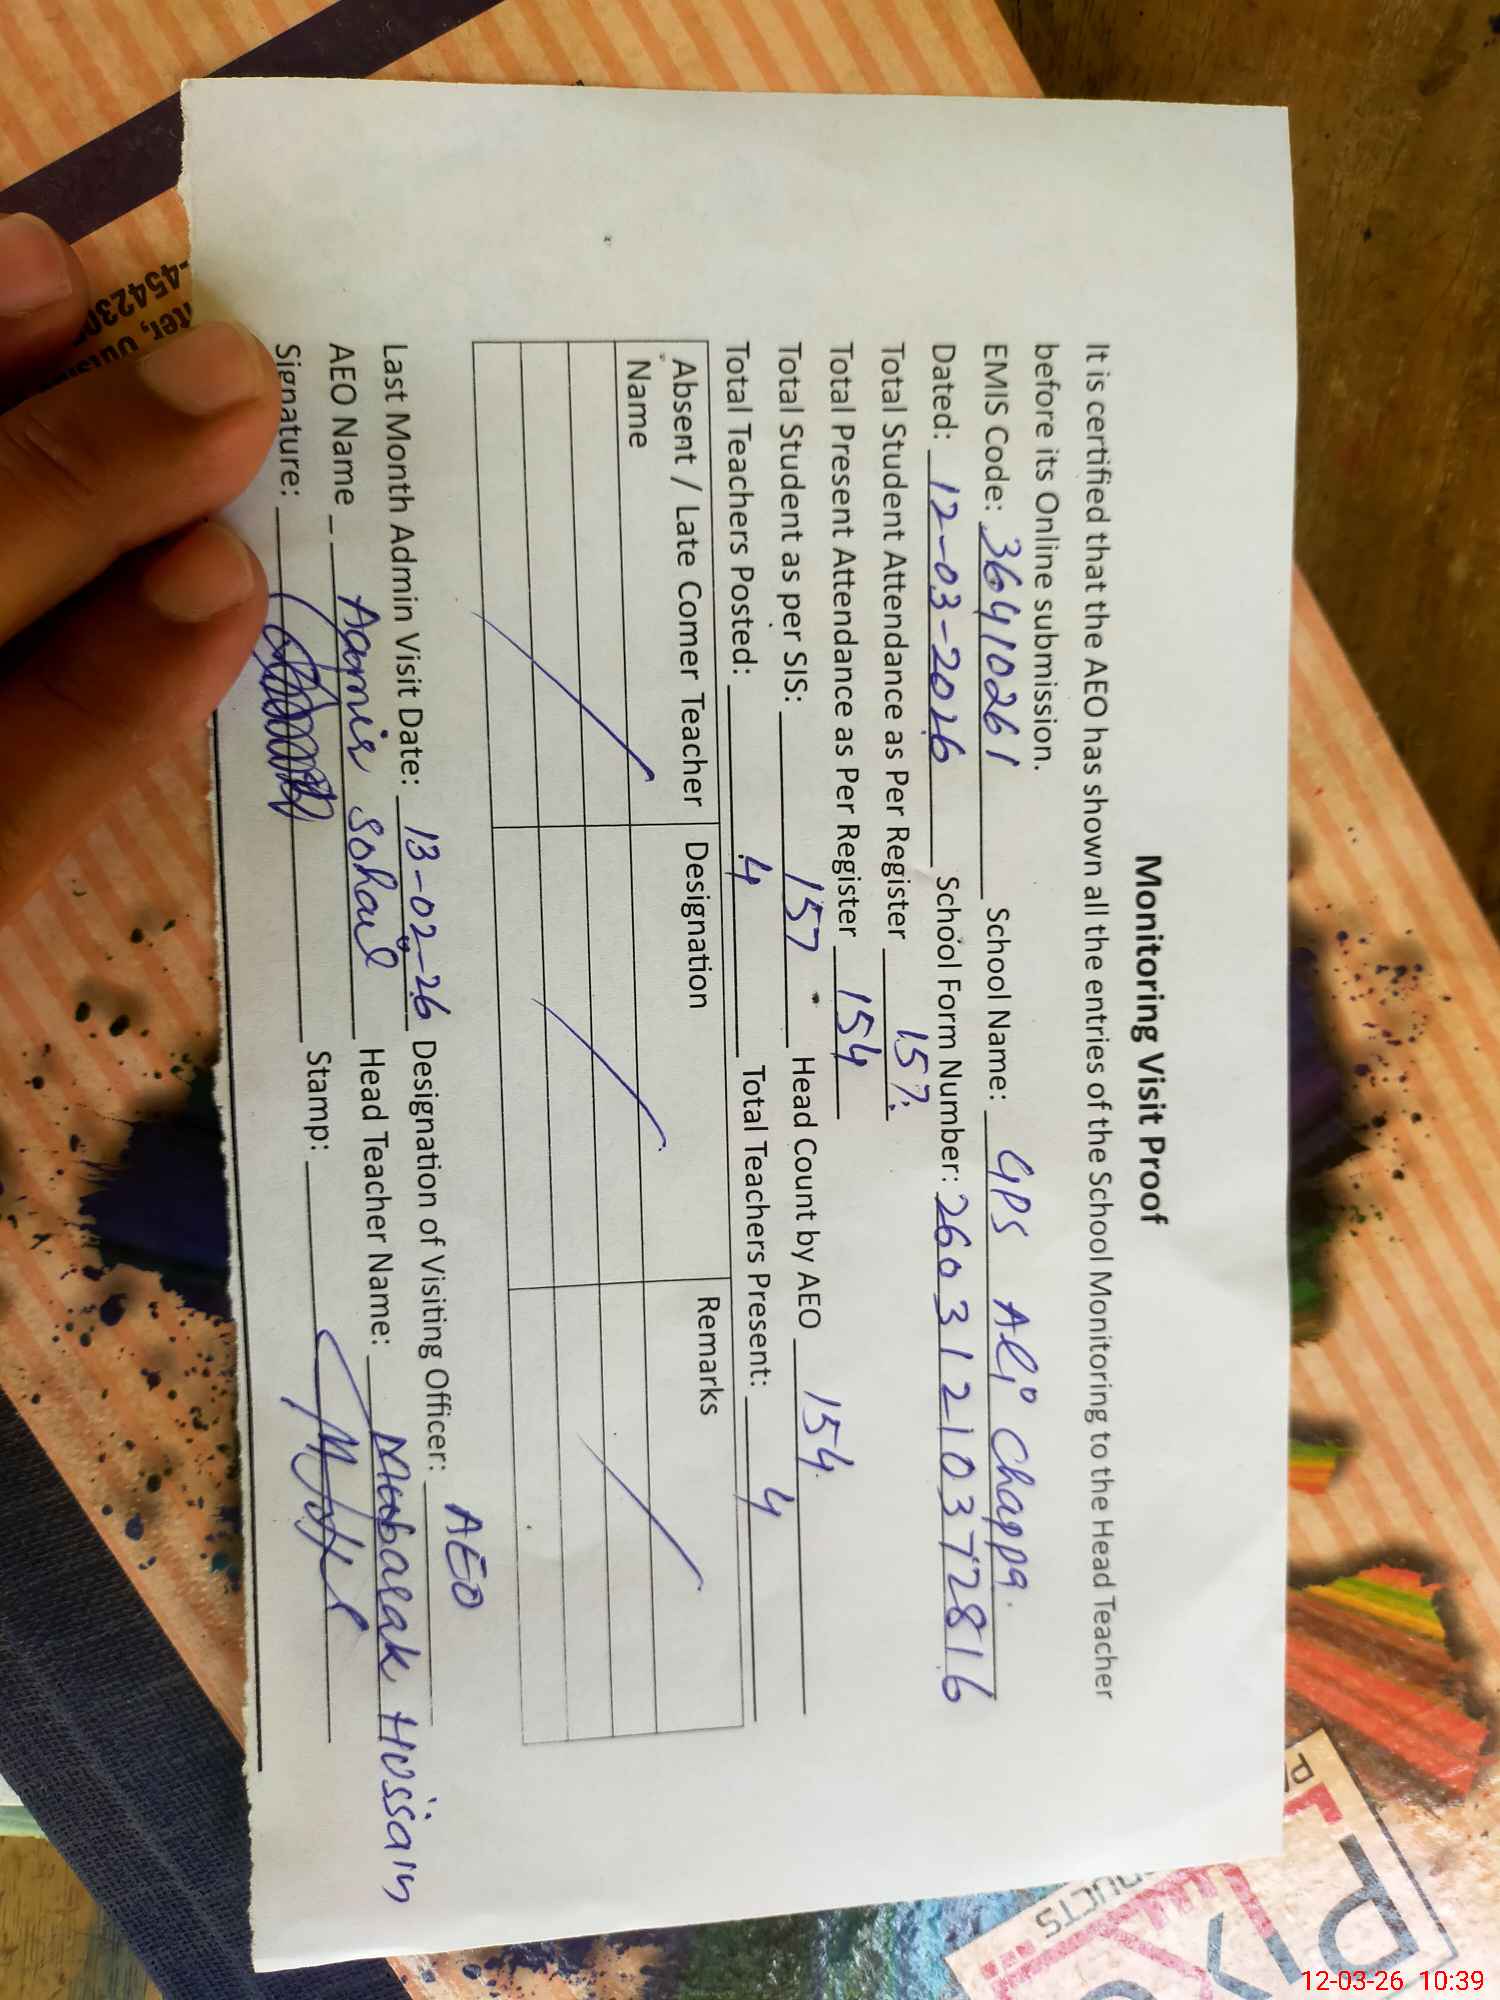 Monitoring Visit Proof
It is certified that the AEO has shown all the entries of the School Monitoring to the Head Teacher
before its Online submission.
EMIS Code: 36410261 School Name: GPS Ali Chappa.
Dated: 12-03-2026 School Form Number: 26031210372816
Total Student Attendance as Per Register 157.
Total Present Attendance as Per Register 154
Total Student as per SIS: 157 Head Count by AEO 154
Total Teachers Posted: 4 Total Teachers Present: 4
Absent / Late Comer Teacher Name Designation Remarks
Last Month Admin Visit Date: 13-02-26 Designation of Visiting Officer: AEO
AEO Name Aamir Sohail Head Teacher Name: Mubarak Hussain
Signature: Stamp:
-45423
PRODUCTS
12-03-26 10:39